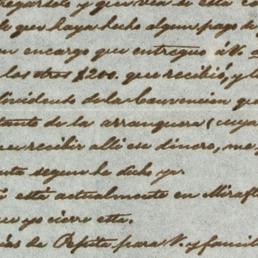 y que vea si esta co
que haya dicho algun pago de
encargo que entregue á V.
los otros $200. que recibió, y
incidente de la convencion que
de la arranguera (cuya
recibir allí ese dinero, me
segun he dicho ya.
está actualmente en Mirafl
que yo cierre esta.
de Pepita para V. y famili